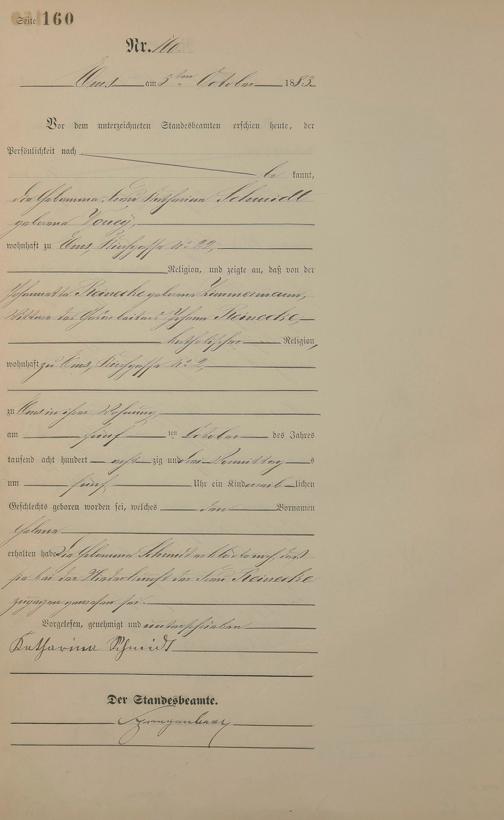 Seite 160
Nr. 160
Ems am 5ten October 1883
Vor dem unterzeichneten Standesbeamten erschien heute, der
Persönlichkeit nach
be kannt,
die Hebamme, Katharina Schmidt
geborene
wohnhaft zu Ems, Kirchgasse No 22,
Religion, und zeigte an, daß von der
Reinecke geborene Zimmermann,
Wittwe des Johann Reinecke,
katholischer Religion,
wohnhaft zu Ems, Kirchgasse No 2,
zu Ems in ihrer Wohnung,
am fünf ten October des Jahres
tausend acht hundert acht zig und drei Vormittags
um fünf Uhr ein Kind weib lichen
Geschlechts geboren worden sei, welches den Vornamen
Helena
erhalten habe. Die Hebamme Schmidt erklärte noch, daß
sie bei der Niederkunft der Frau Reinecke
zugegen gewesen sei.
Vorgelesen, genehmigt und unterschrieben
Katharina Schmidt
Der Standesbeamte.